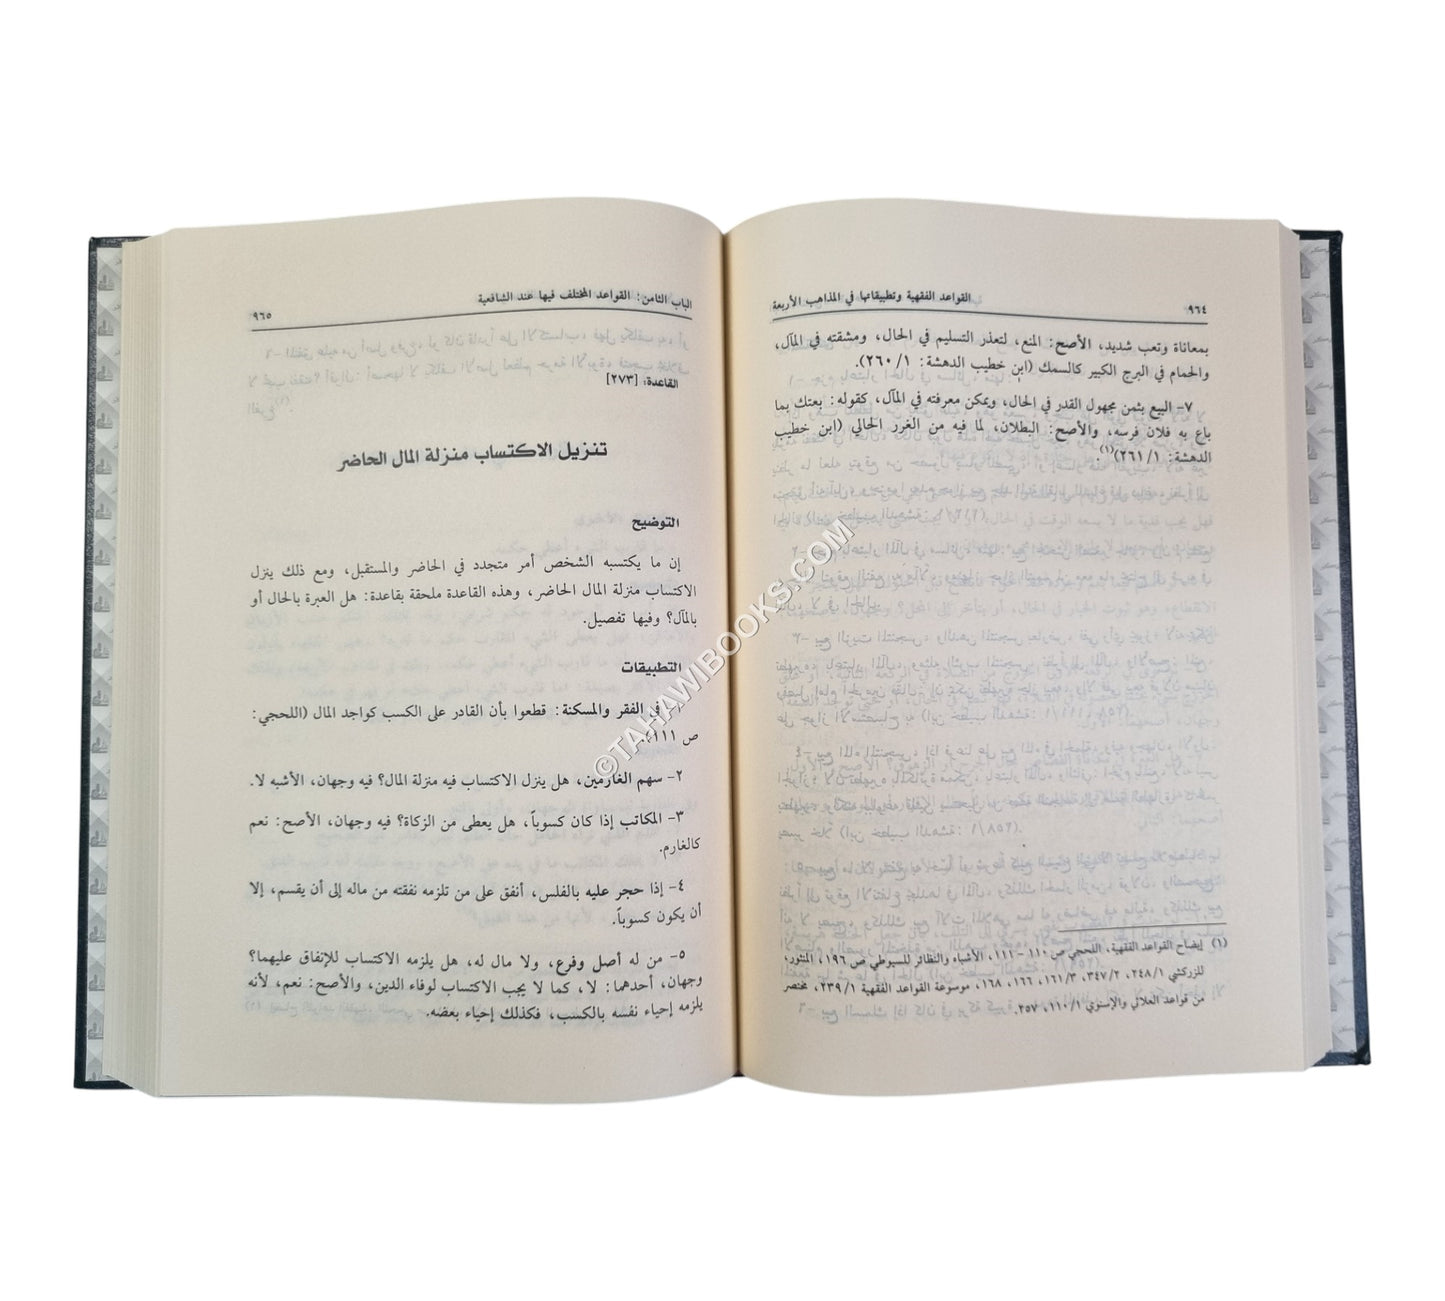 ٩٦٤
القواعد الفقهية وتطبيقاتها في المذاهب الأربعة
بمعاناة وتعب شديد، الأصح: المنع، لتعذر التسليم في الحال، ومشقته في المآل،
والحمام في البرج الكبير كالسمك (ابن خطيب الدهشة: ٢٦٠/١).
٧- البيع بثمن مجهول القدر في الحال، ويمكن معرفته في المآل، كقوله: بعتك بما
باع به فلان فرسه، والأصح: البطلان، لما فيه من الغرر الحالي (ابن خطيب
الدهشة: ٢٦١/١)(١).
(١) إيضاح القواعد الفقهية، اللحجي ص ١١٠ - ١١١، الأشباه والنظائر للسيوطي ص ١٩٦، المنثور،
للزركشي ٢٤٨/١، ٣٤٧/٢، ١٦١/٣، ١٦٦، ١٦٨، موسوعة القواعد الفقهية ٢٣٩/١، مختصر
من قواعد العلائي والإسنوي ١١٠/١، ٢٥٧.
الباب الثامن: القواعد المختلف فيها عند الشافعية
٩٦٥
القاعدة: [٢٧٣]
تنزيل الاكتساب منزلة المال الحاضر
التوضيح
إن ما يكتسبه الشخص أمر متجدد في الحاضر والمستقبل، ومع ذلك ينزل
الاكتساب منزلة المال الحاضر، وهذه القاعدة ملحقة بقاعدة: هل العبرة بالحال أو
بالمآل؟ وفيها تفصيل.
التطبيقات
١- في الفقر والمسكنة: قطعوا بأن القادر على الكسب كواجد المال (اللحجي:
ص ١١١).
٢- سهم الغارمين، هل ينزل الاكتساب فيه منزلة المال؟ فيه وجهان، الأشبه لا.
٣- المكاتب إذا كان كسوباً، هل يعطى من الزكاة؟ فيه وجهان، الأصح: نعم
كالغارم.
٤- إذا حجر عليه بالفلس، أنفق على من تلزمه نفقته من ماله إلى أن يقسم، إلا
أن يكون كسوباً.
٥- من له أصل وفرع، ولا مال له، هل يلزمه الاكتساب للإنفاق عليهما؟
وجهان، أحدهما: لا، كما لا يجب الاكتساب لوفاء الدين، والأصح: نعم، لأنه
يلزمه إحياء نفسه بالكسب، فكذلك إحياء بعضه.
©TAHAWIBOOKS.COM